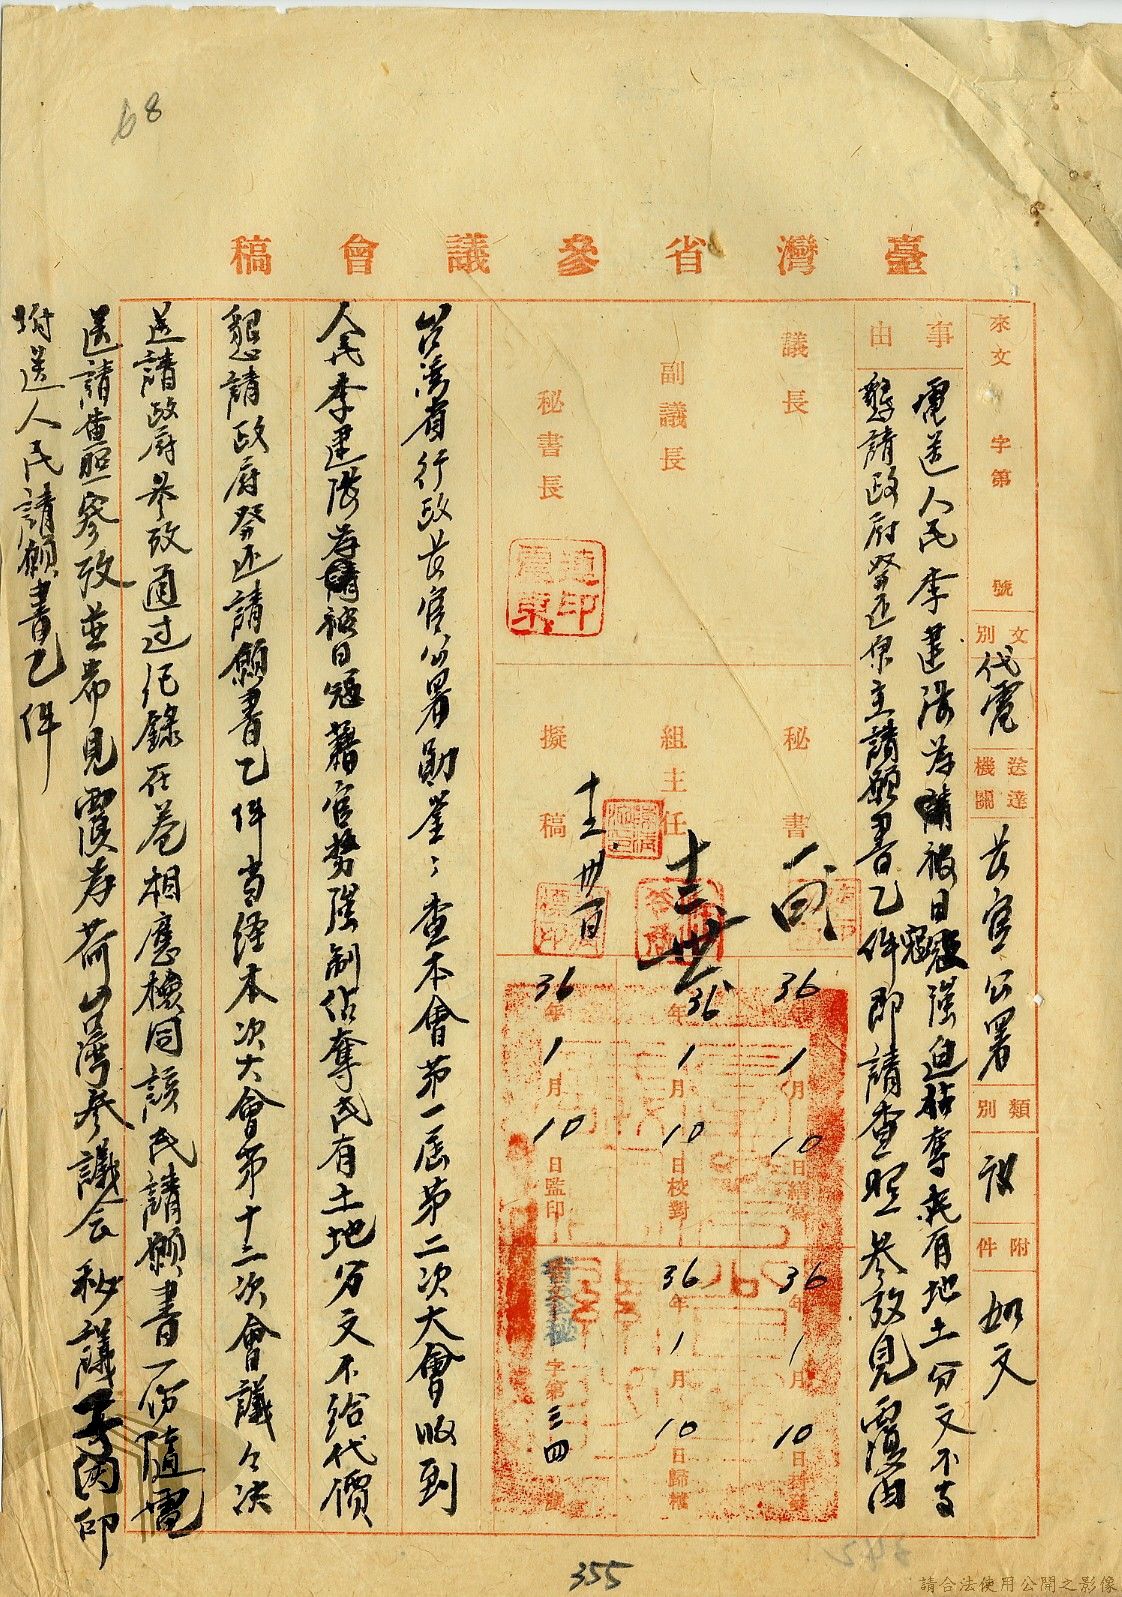 68
臺灣省參議會稿
來文 字第 號
文別 代電
送達機關 長官公署
類別 議
附件 如文
事由
電送人民李建陽為請被日寇強迫佔奪民有地土分文不與
懇請政府發还原主請願書乙件即請查照參考見覆由
議長
副議長
秘書長
連震東印
秘書
組主任
擬稿
十二 卅一
十二卅一
36年1月10日繕寫
36年1月10日校對
36年1月10日監印
36年1月10日封發
36年1月10日歸檔
省參秘字第三四號
台湾省行政長官公署勛鉴:查本會第一屆第二次大會收到
人民李建陽為請被日寇藉官勢強制佔奪民有土地分文不給代價
懇請政府發还請願書乙件当経本次大會第十二次會議々決
送請政府參攷通过纪錄在卷相應檢同該民請願書一份隨電
送請查照參攷並希見覆為荷台灣參議会秘議子 印
附送人民請願書乙件
355
請合法使用公開之影像